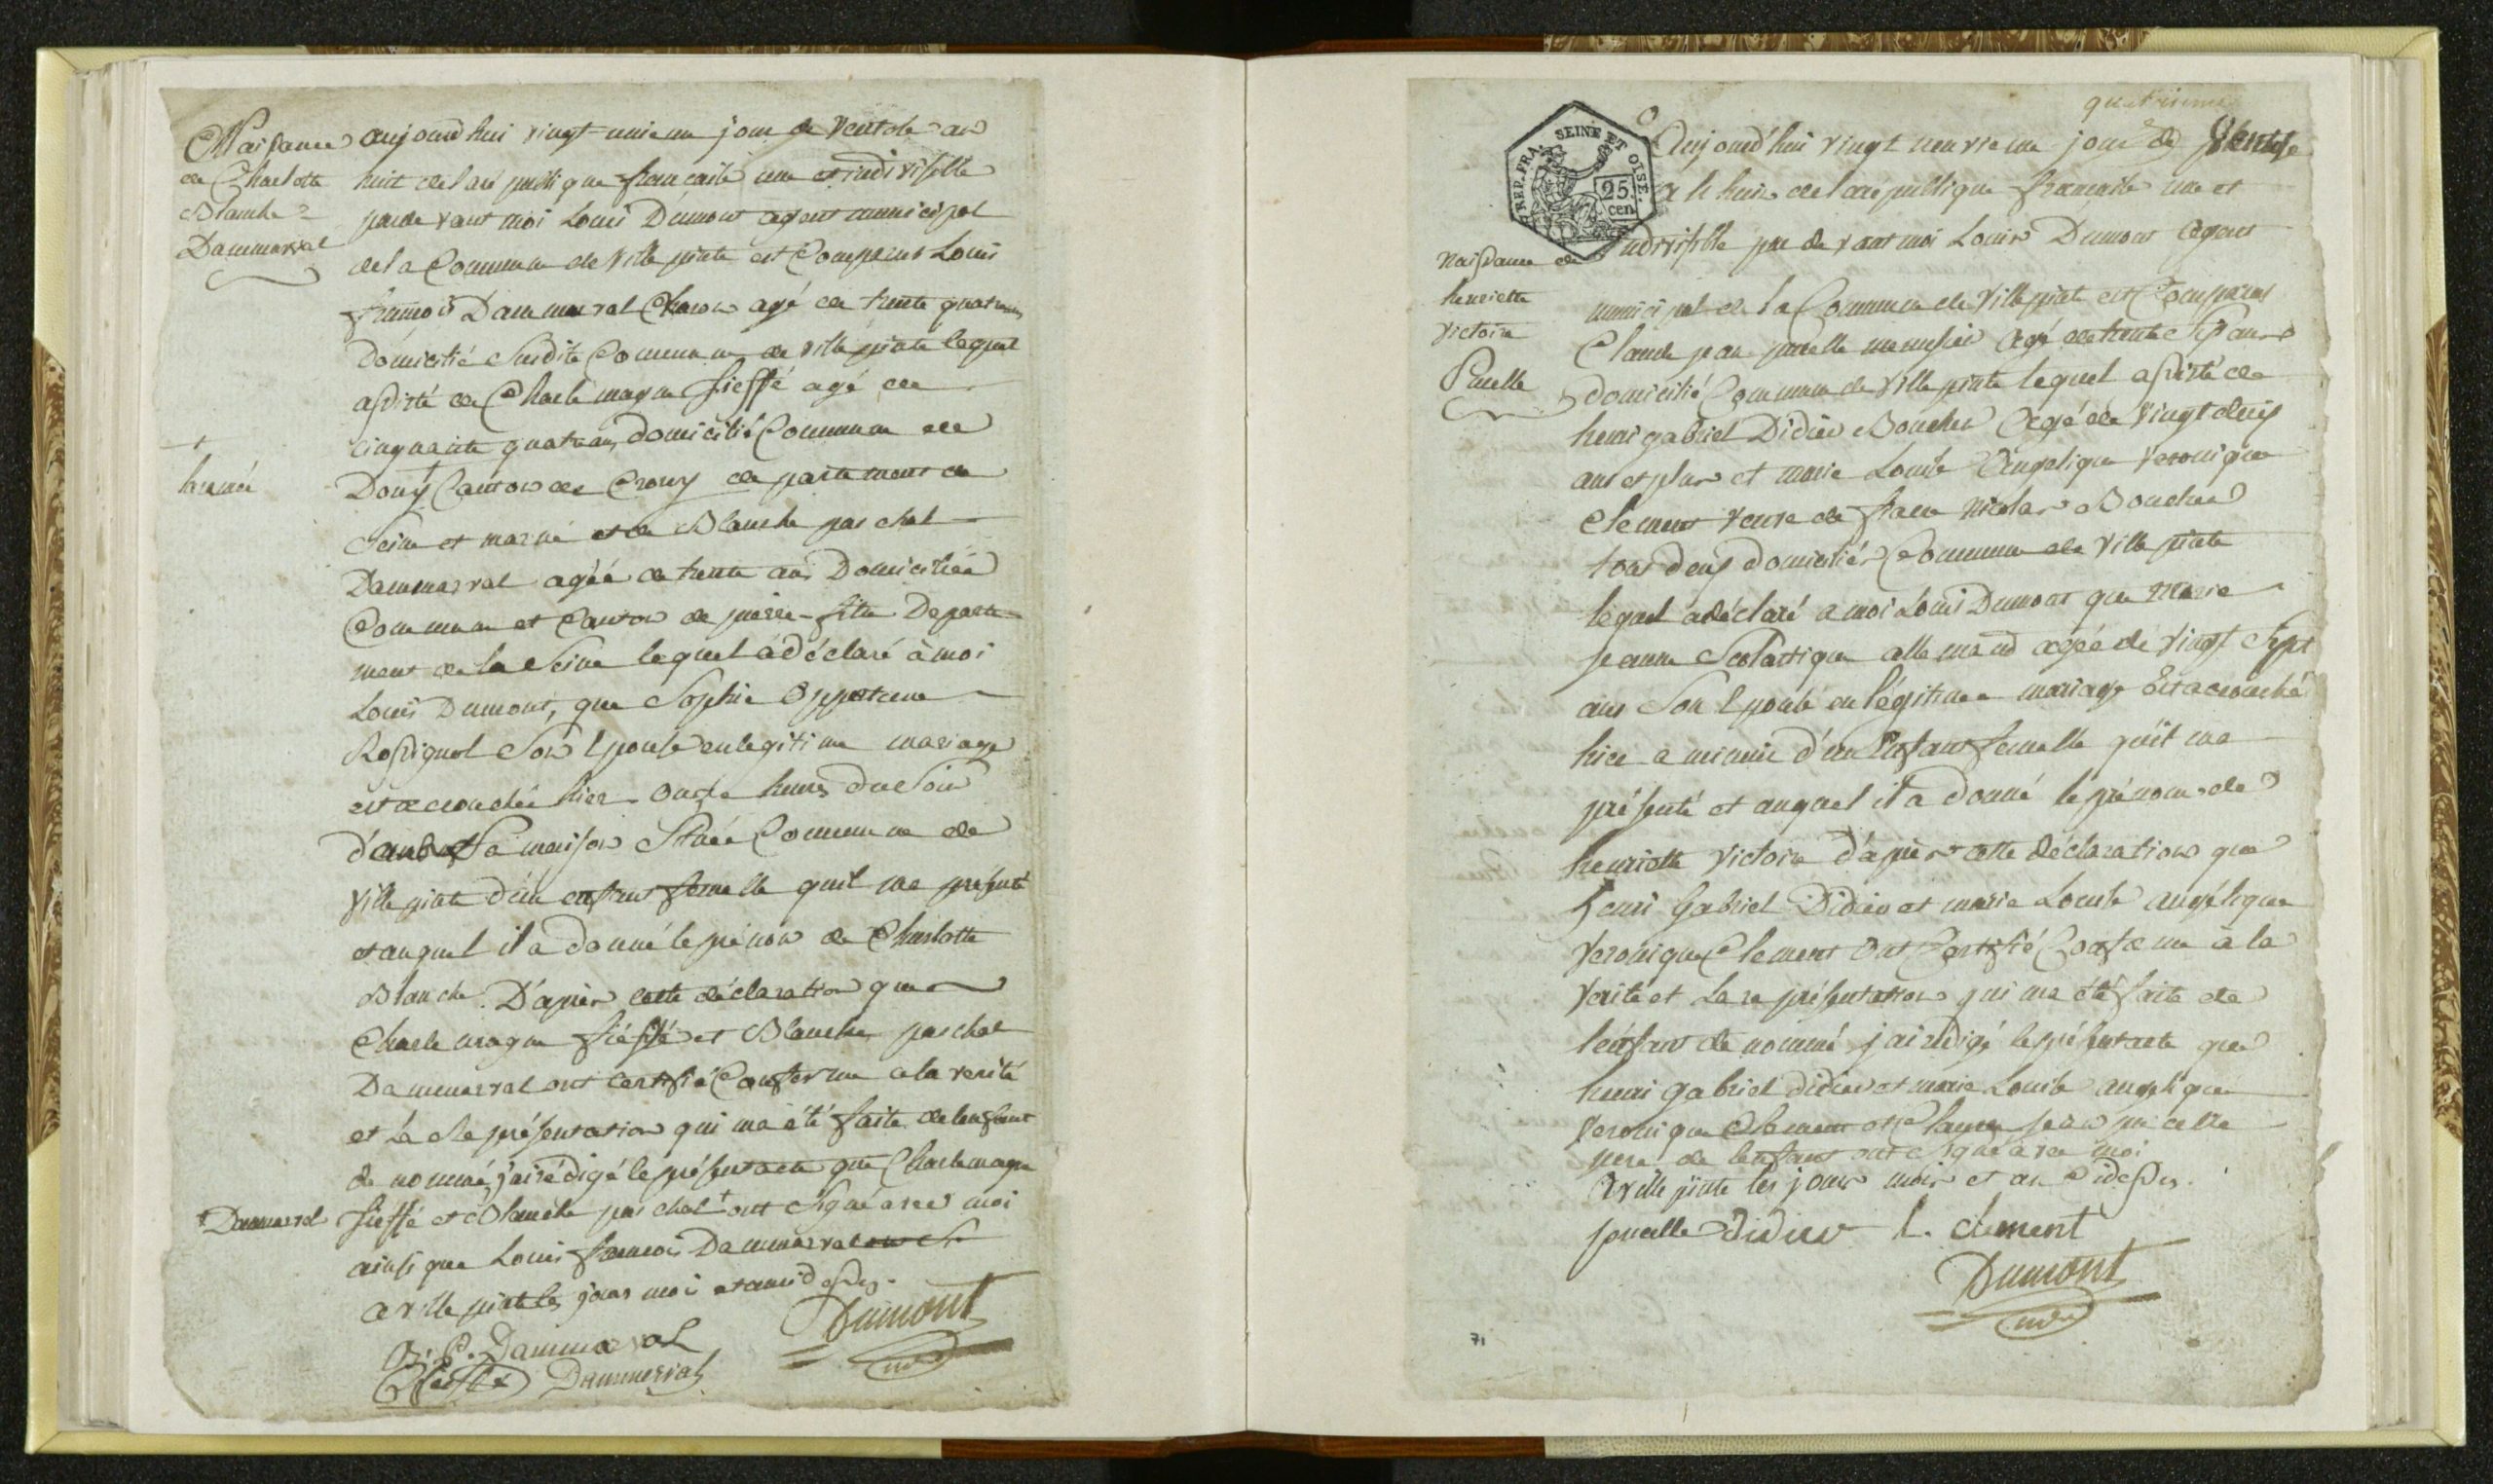 Naissance
de Charlotte
Blanche
Dammarval
aujourdhui vingt-unieme jour de Ventose an
huit de la republique francaise une et indivisible
parde vant moi Louis Dumont agent municipal
de la Commune de Villepinte est Comparus Louis
françois Dammarval Charon agé de trente quatre ans
domicilié Susdite Commune de villepinte lequel
assisté de Charlemagne fieffé agé de
cinquante quatre ans, domicilié Commune de
+
Douy Canton de Crouy departement de
Seine et marne et de Blanche paschal
Dammarval agée de trente ans Domiciliée
Commune et Canton de pierre-fitte Departe
ment de la Seine lequel a déclaré à moi
Louis Dumont, que Sophie Opportune
Rossignol Son Epouse en legitime mariage
est accouchée hier onze heures du Soir
dans Sa maison Située Commune de
Villepinte d'un enfant femelle quil ma présenté
et auquel il a donné le prénom de Charlotte
Blanche. D'après cette déclaration que
Charlemagne fiéffé et Blanche paschal
Dammarval ont certifié Conforme a la verité
et La Représentation qui ma été faite de lenfant
de nommé, j'ai rédigé le présent acte que Charlemagne
+ Dammarval
fieffé et Blanche paschal + ont Signé avec moi
ainsi que Louis françois Dammarval
a villepinte les jours moi et an cidessus.
Dumont
B. P. Dammarval
fieffé Dammarval
quatrieme
REP. FRA. SEINE ET OISE.
25 cen
Aujourd'hui vingt neuvieme jour de Ventose
a le huit de la republique francaise une et
indivisible par de vant moi Louis Dumont agent
Naissance de
henriette
Victoire
Pucelle
municipal de la Commune de Villepinte est Comparus
Claude jean pucelle menusier agé de trente Six ans
domicilié Commune de Villepinte lequel assisté de
henri gabriel Didier Boucher agé de vingt deux
ans et plus et marie Louise Angelique Veronique
Clement veuve de Nicolas Boucher
tous deux domiciliés Commune de Villepinte
lequel a déclaré a moi Louis Dumont que Marie
jeanne Scolastique allemand agée de vingt Sept
ans Son Epouse en légitime mariage Est acouché
hier a minuit d'un Enfant femelle qu'il ma
présenté et auquel il a donné le prénom de
henriette Victoire d'après cette déclaration que
henri Gabriel Didier et marie Louise angélique
Veronique Clement ont Certifié Conforme à la
Verité et La représentation qui ma été faite de
l'enfant de nommé j'ai rédigé le présent acte que
henri gabriel didier et marie Louise angelique
Veronique Clement et Claude jean pucelle
pere de lenfant ont signé avec moi
a ville pinte les jours mois et an Cidessus.
pucelle Didier L. clement
Dumont
71